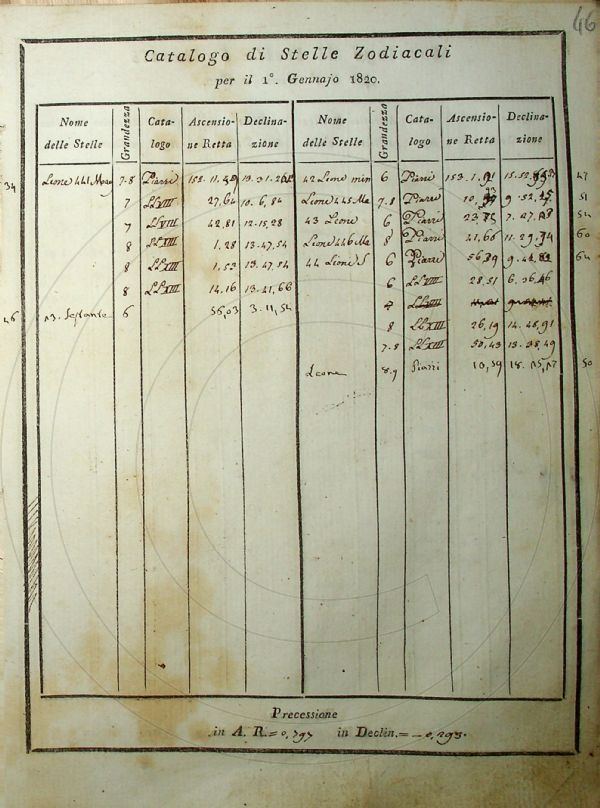 46
Catalogo di Stelle Zodiacali
per il 1°. Gennajo 1820.
Nome delle Stelle Grandezza Catalogo Ascensione Retta Declinazione Nome delle Stelle Grandezza Catalogo Ascensione Retta Declinazione
34 Leone 441 7.8 Piazzi 152. 11. 13. 31. 42 Leone min 6 Piazzi 153. 1. 15. 52. 47
7 LLVIII 27,64 10. 6, 84 Leone 445 Ma 7.8 Piazzi 10, 9. 52, 51
7 LLVIII 42,81 12. 15, 28 43 Leone 6 Piazzi 7. 54
8 LLXIII 1,28 13. 47, 54 Leone 446 Ma 8 Piazzi 41,66 11. 29, 60
8 LLXIII 1,53 13. 47, 54 44 Leone 6 Piazzi 9. 64
8 LLXIII 14,16 13. 21, 66 6 LLVIII 28,51 6. 36, 46
46 13. Sestante 6 56,03 3. 11, 54
8 LLXIII 26,19 14. 48, 91
7.8 LLXIII 50,43 13. 38, 49
Leone 8.9 Piazzi 10,59 18. 50
Precessione
in A. R. = 0,797 in Declin. = — 0,295.